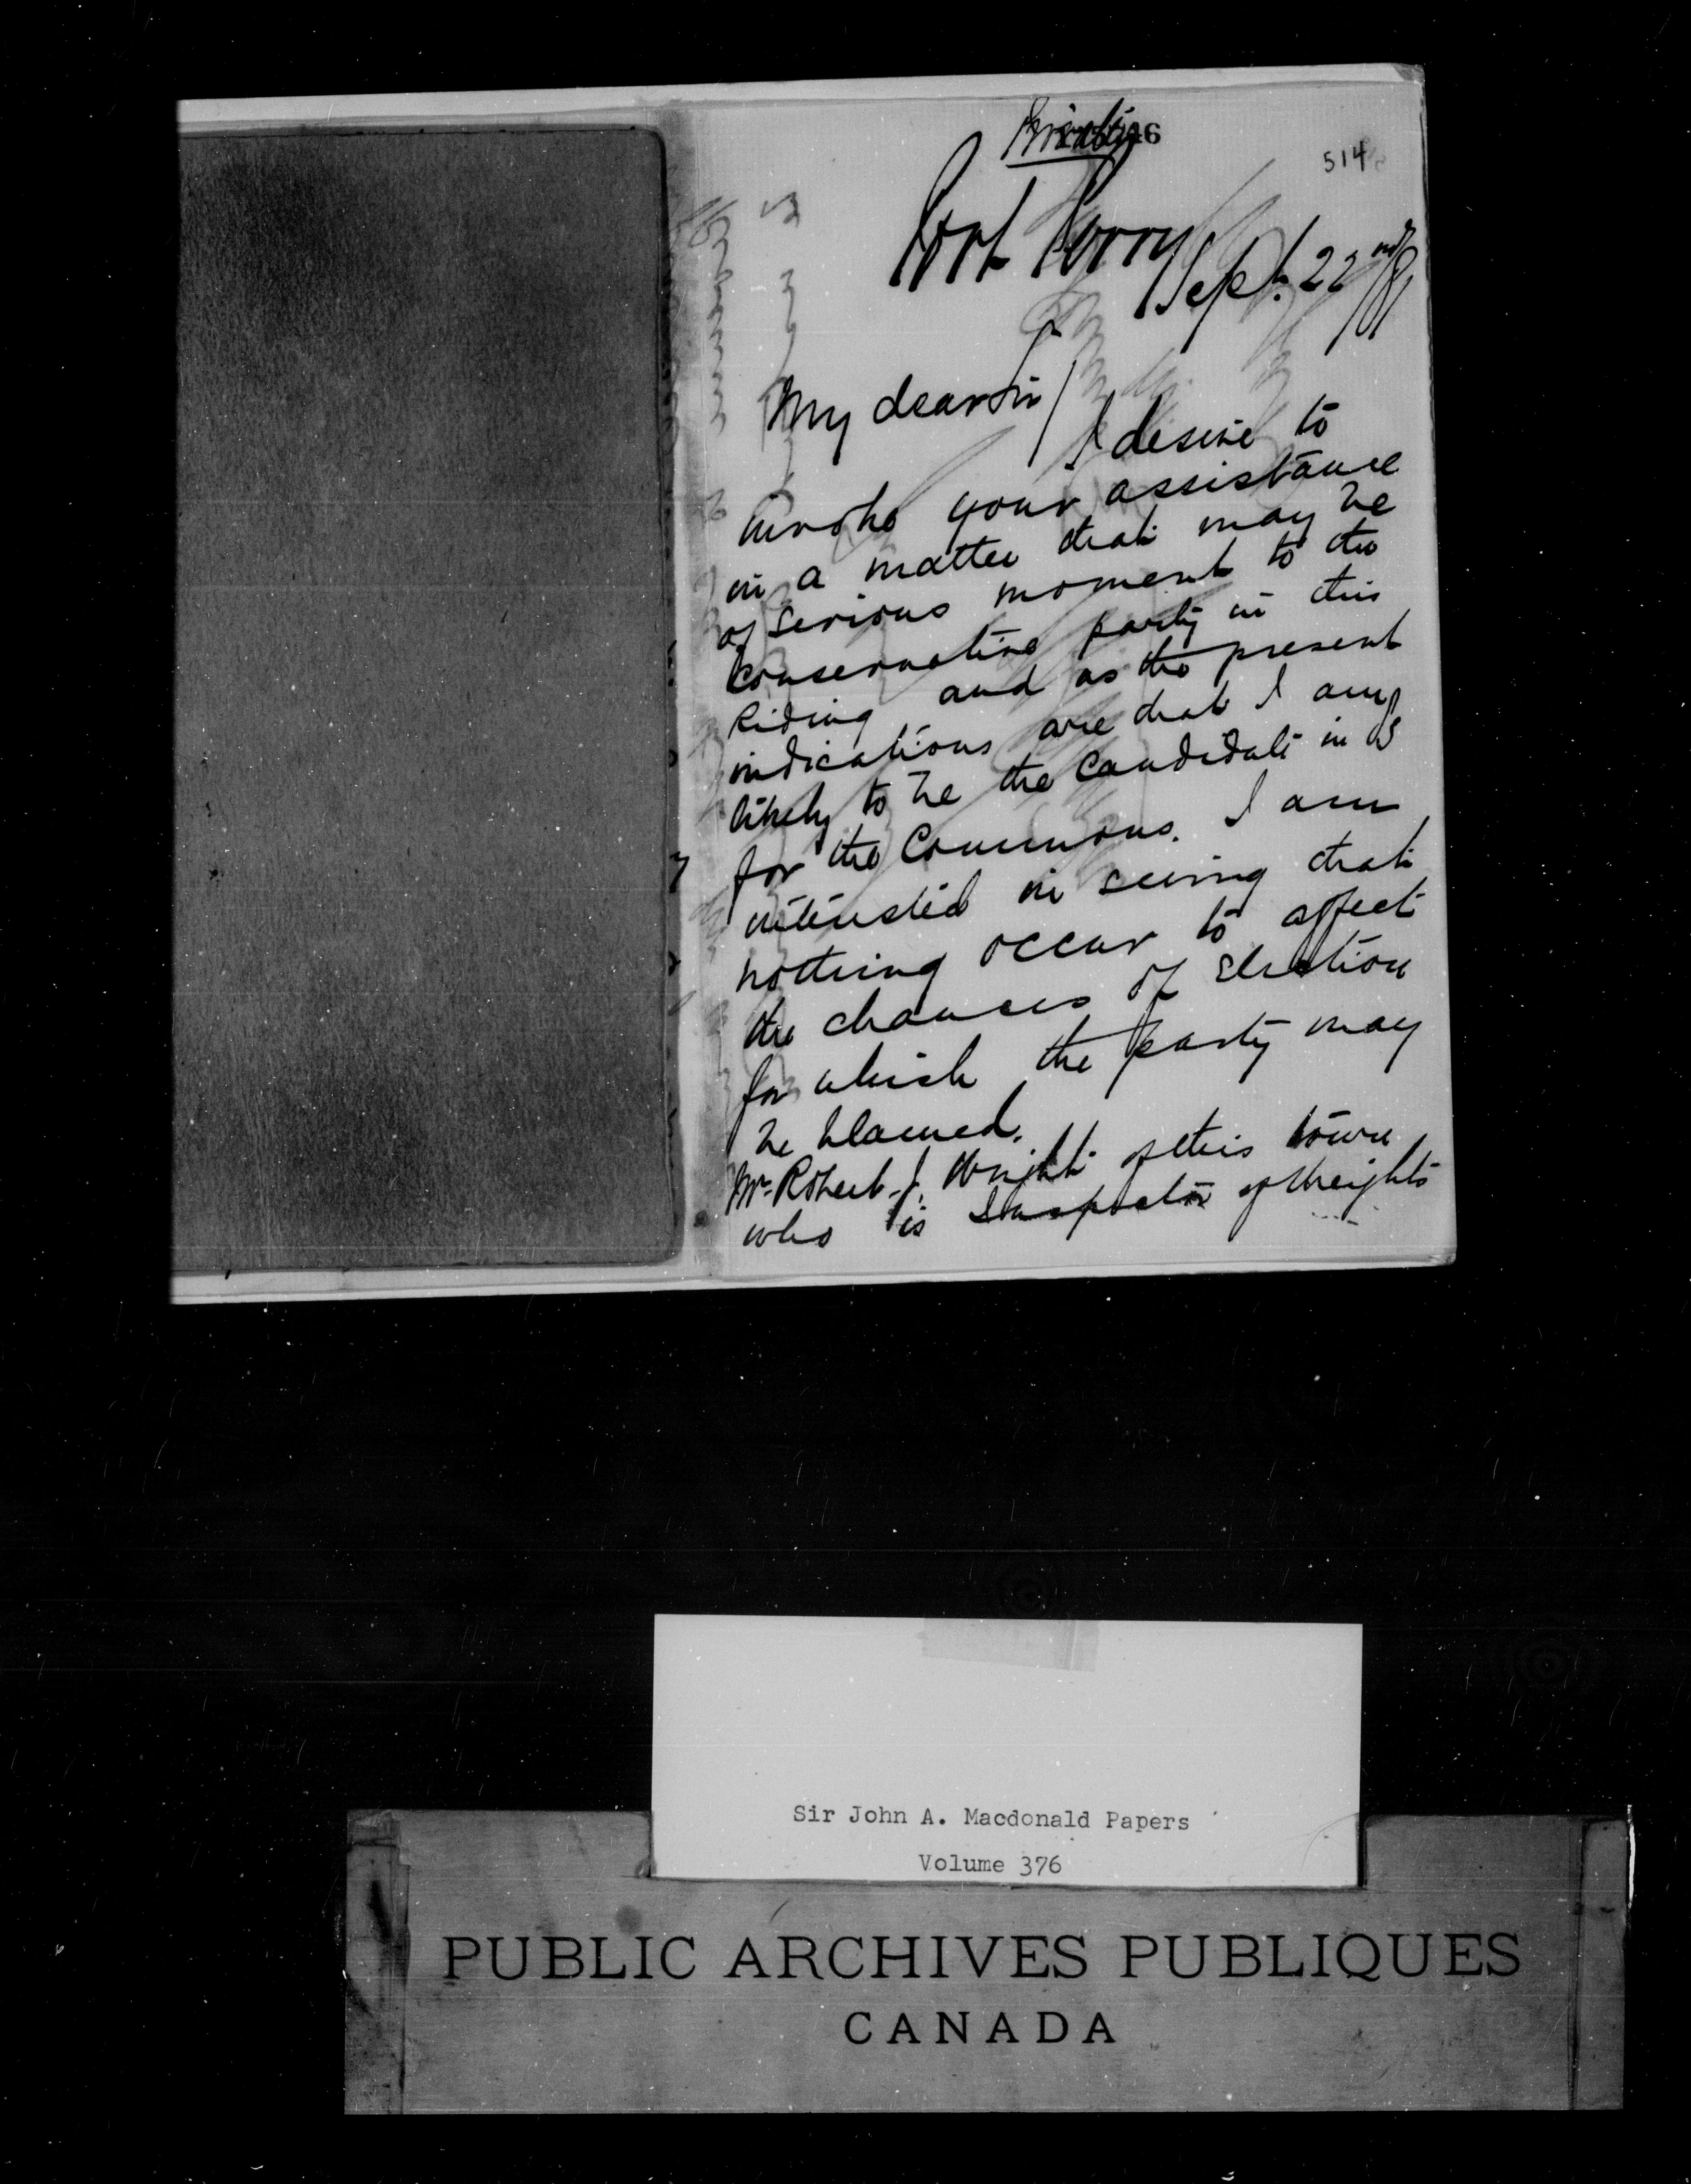 Private
46
514
Port Perry
Sept. 22nd/81
My dear Sir/
I desire to
invoke your assistance
in a matter that may be
of serious moment to the
Conservative party in this
Riding and as the present
indications are that I am
likely to be the Candidate in
for the Commons. I am
interested in seeing that
nothing occur to affect
the chances of election
for which the party may
be blamed.
Mr. Robert J. Wright of this town
who is Inspector of Weights
Sir John A. Macdonald Papers
Volume 376
PUBLIC ARCHIVES PUBLIQUES
CANADA